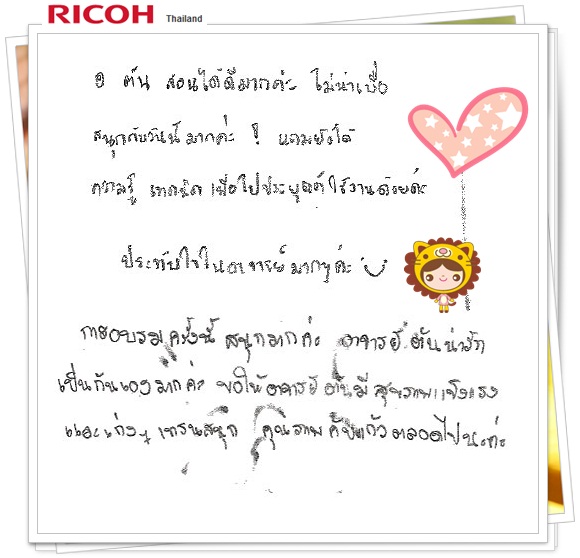 RICOH Thailand
อ ตั้น สอนได้ดีมากค่ะ ไม่น่าเบื่อ
สนุกกับวันนี้มากค่ะ ! แถมยังได้
ความรู้ เทคนิค เพื่อไปประยุกต์ใช้งานด้วยค่ะ
ประทับใจในอาจารย์มากๆค่ะ
การอบรมครั้งนี้ สนุกมากค่ะ อาจารย์ ตั้นน่ารัก
เป็นกันเองมากค่ะ ขอให้อาจารย์ ตั้นมีสุขภาพแข็งแรง
และเก่งๆ เทรนสนุก คุณภาพ ตลอดไปนะค่ะ